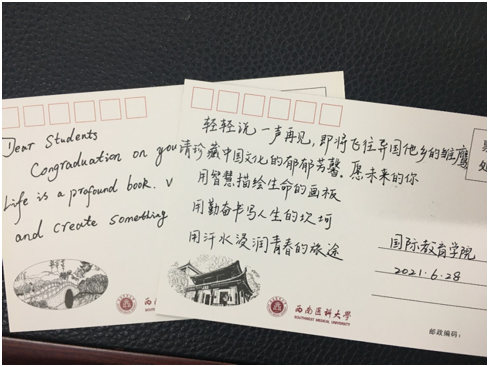 Dear Students
Congraduation on you
Life is a profound book.
and create something
西南医科
SOUTHWEST MEDICAL
轻轻说一声再见,即将飞往异国他乡的雏鹰
请珍藏中国文化的郁郁芳馨.愿未来的你
用智慧描绘生命的画板
用勤奋书写人生的坎坷
用汗水浸润青春的旅途
国际教育学院
2021.6.28
西南医科大学
SOUTHWEST MEDICAL UNIVERSITY
邮政编码: